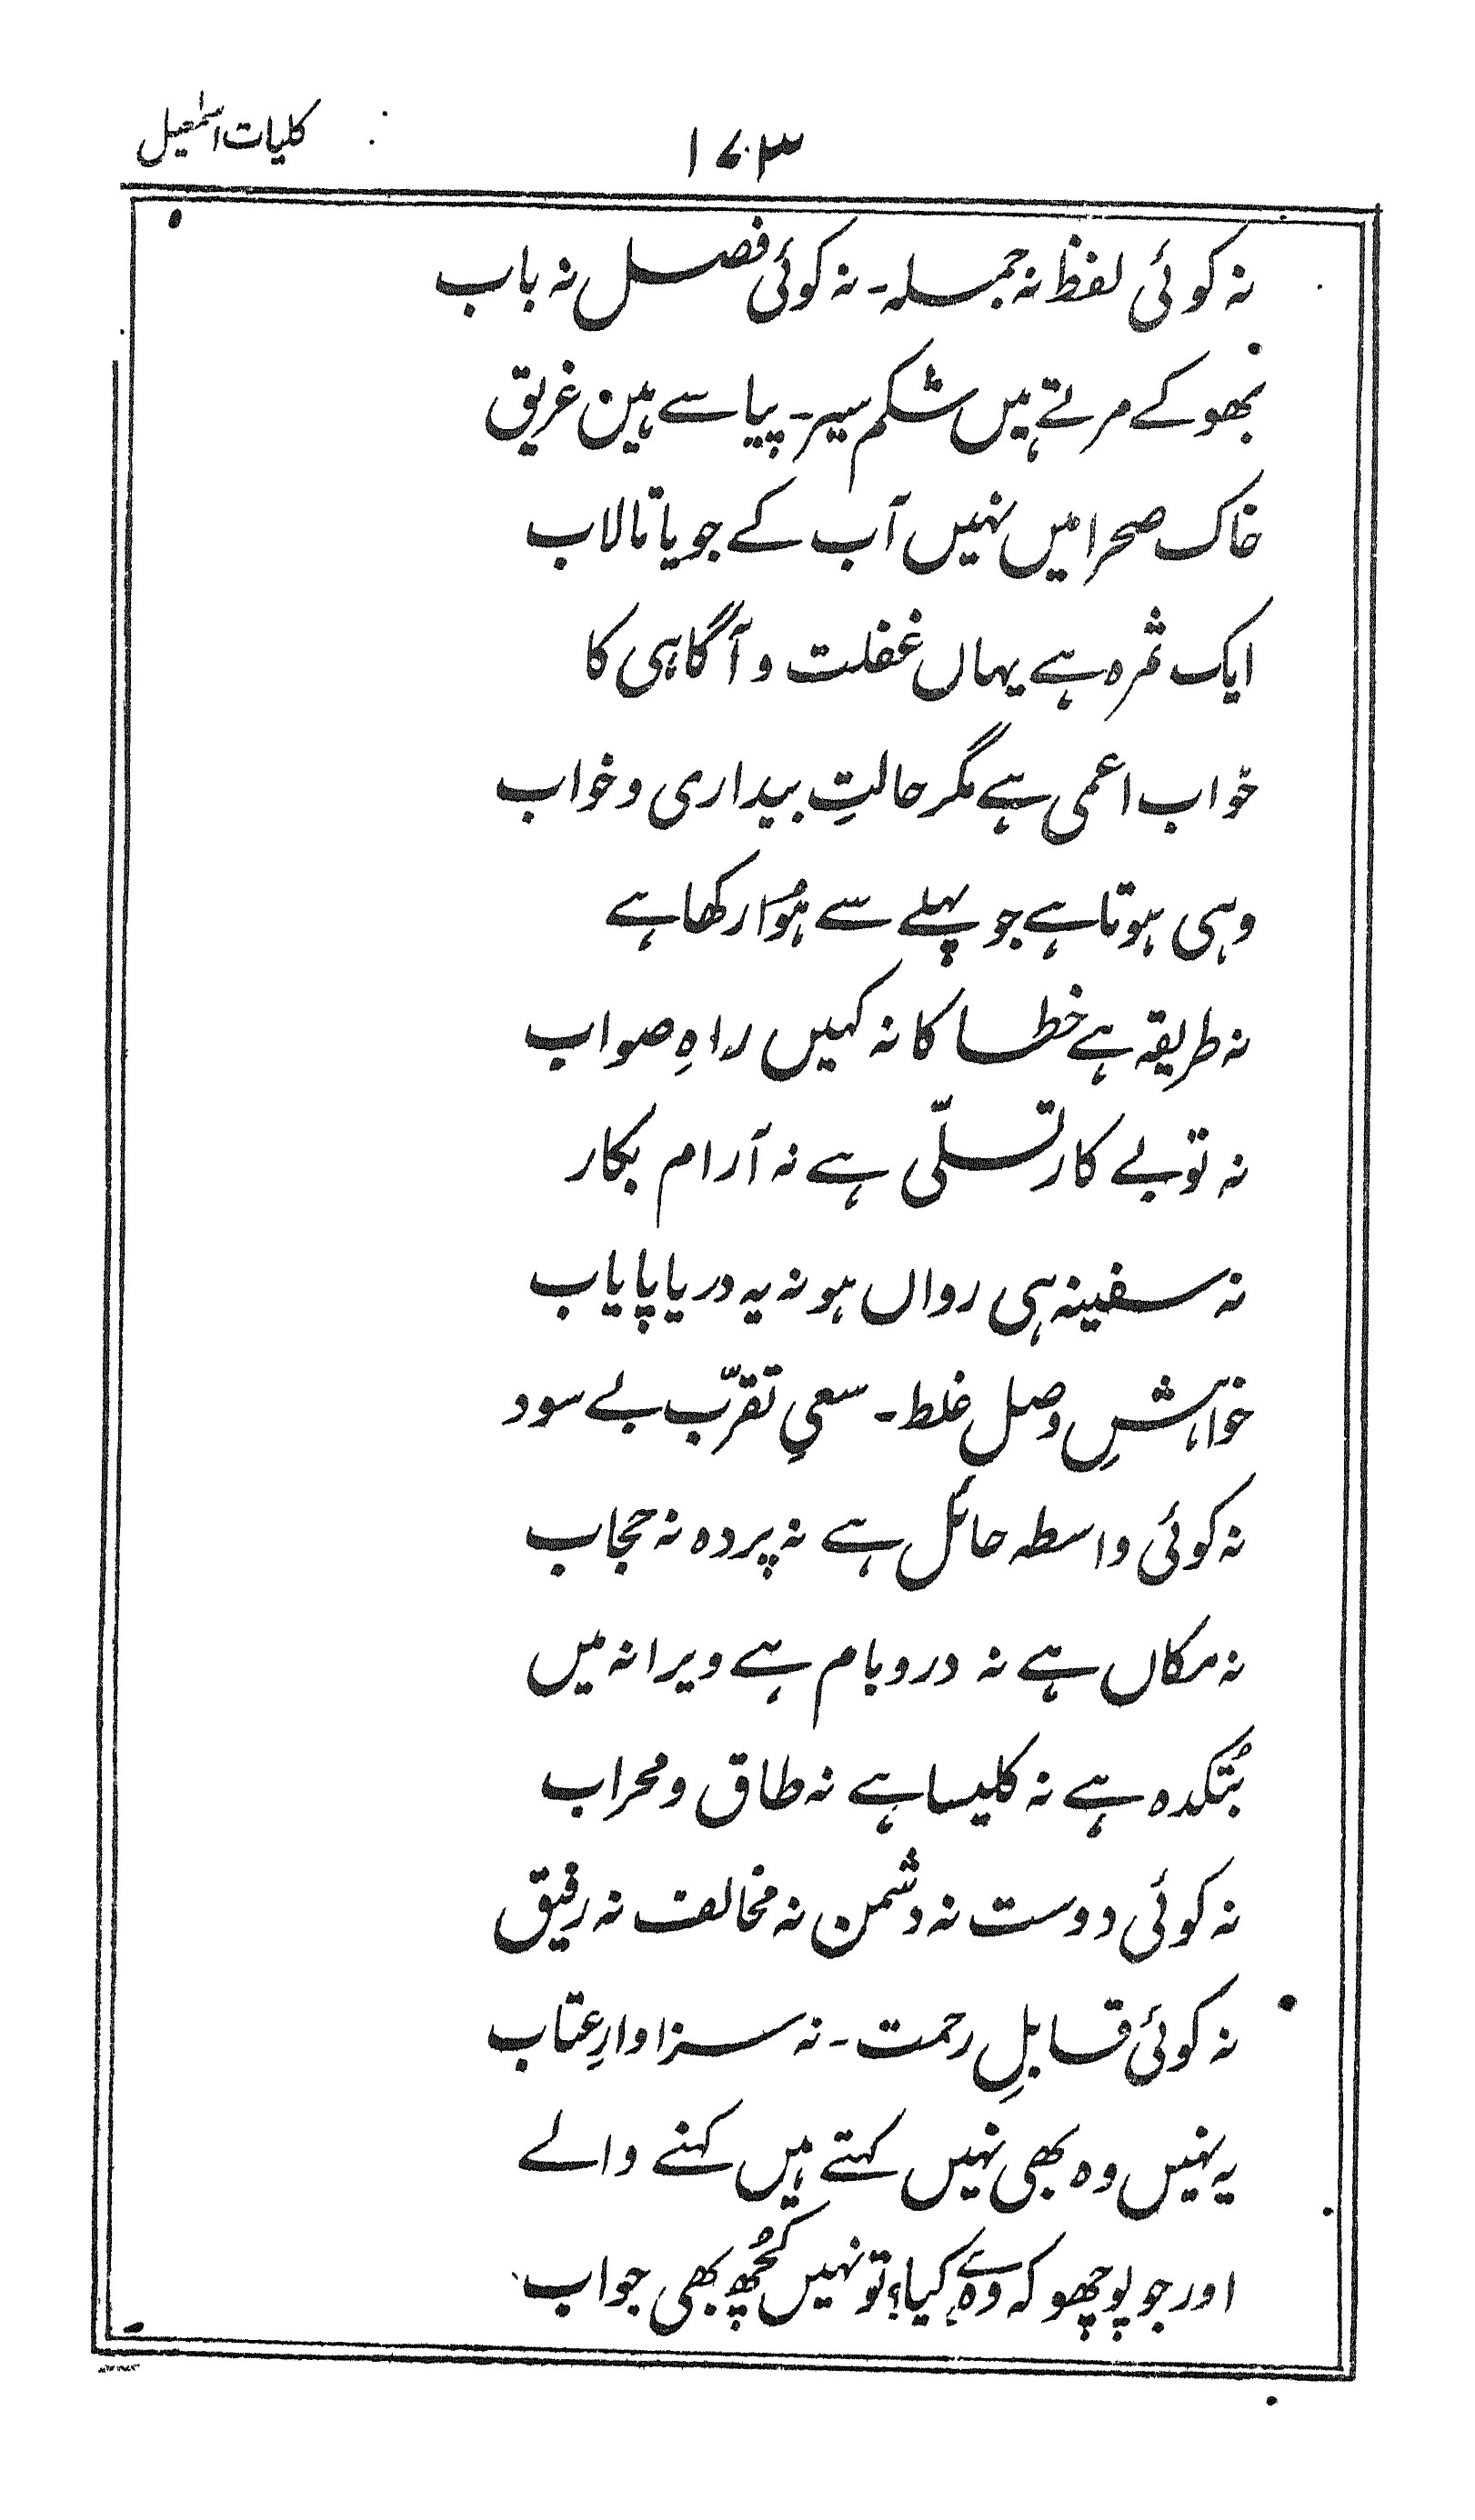 کلیات اسمٰعیل
۱۷۳
نہ کوئی لفظ نہ جملہ۔ نہ کوئی فصل نہ باب
بھوکے مرتے ہیں شکم سیر۔ پیاسے ہین غریق
خاک صحرا میں نہیں آب کے جویا تالاب
ایک ثمرہ ہے یہاں غفلت و آگاہی کا
خواب اعمی ہے مگر حالتِ بیداری و خواب
وہی ہوتا ہے جو پہلے سے ہُوَا رکھا ہے
نہ طریقہ ہے خطا کا نہ کہیں راہِ صواب
نہ تو بے کار تسلّی ہے نہ آرام بکار
نہ سفینہ ہی رواں ہو نہ یہ دریا پایاب
خواہشِ وصل غلط۔ سعیِ تقرّب بے سود
نہ کوئی واسطہ حائل ہے نہ پردہ نہ حجاب
نہ مکاں ہے نہ در و بام ہے ویرانہ میں
بُتکدہ ہے نہ کلیسا ہے نہ طاق و محراب
نہ کوئی دوست نہ دشمن نہ مخالف نہ رفیق
نہ کوئی قابلِ رحمت۔ نہ سزاوارِ عتاب
یہ نہیں وہ بھی نہیں کہتے ہیں کہنے والے
اور جو پوچھو کہ وہ ہے کیا؟ تو نہیں کُچھ بھی جواب